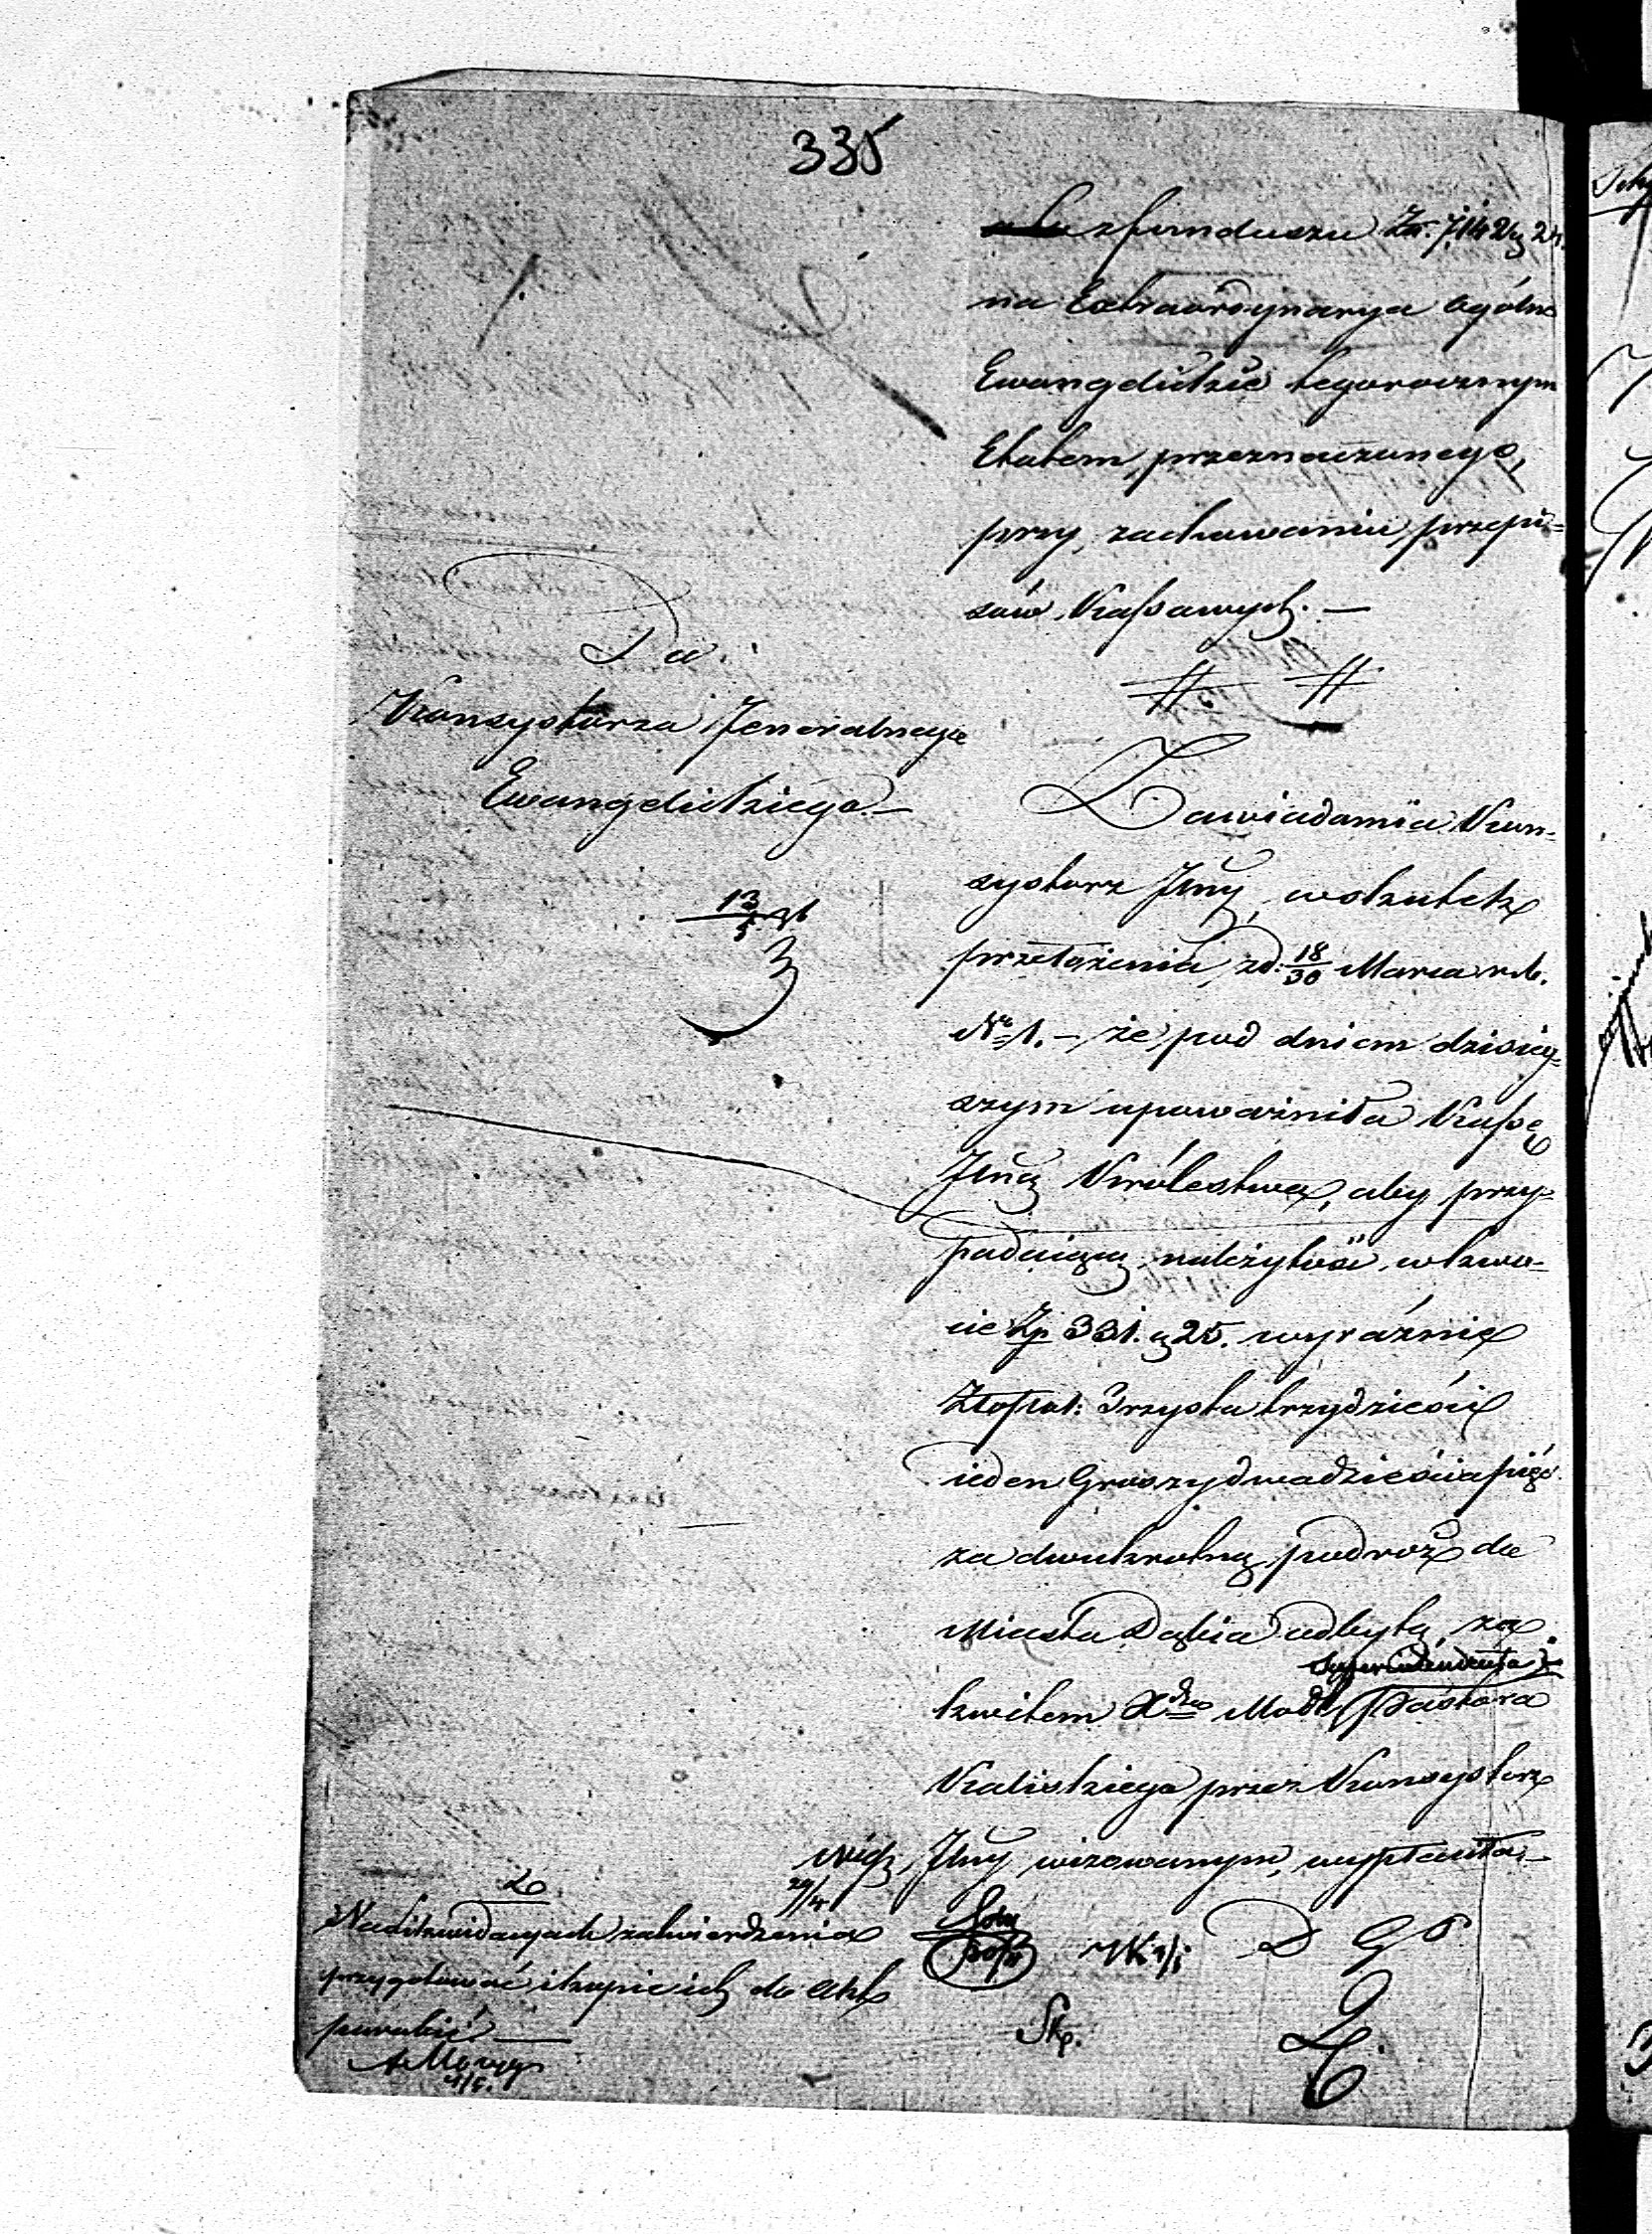 335
z funduszu Zł. 7142 g 24.
na Extraordynarya Ogólne
Ewangelickie tegorocznym
Etatem przeznaczonego,
przy zachowaniu przepi=
sów Kassowych. —
Do
Konsystorza Jeneralnego
Ewangelickiego. —
13/5 36
Zawiadamia Kon=
systorz Jlny, wskutek
przełożenia z d. 18/30 Marca r. b.
Nr 1. — że pod dniem dzisiey=
szym upoważniła Kassę
Jlną Królestwa, aby przy=
padaiącą należytość w kwo=
cie Zp 331. g 25. wyraźnie
Złotpol: Trzysta trzydzieści
ieden Groszy dwadzieścia pięć.
za dwukrotną podróż do
Miasta Dąbia odbytą, za
Superintendenta i
kwitem Xdza Modl Pastora
Kaliskiego przez Konsystorz
Jlny wizowanym, wypłaciła. —
29/4
D G P
Na likwidacyach zatwierdzenia
przygotować i kopie ich do akt
porobić. —